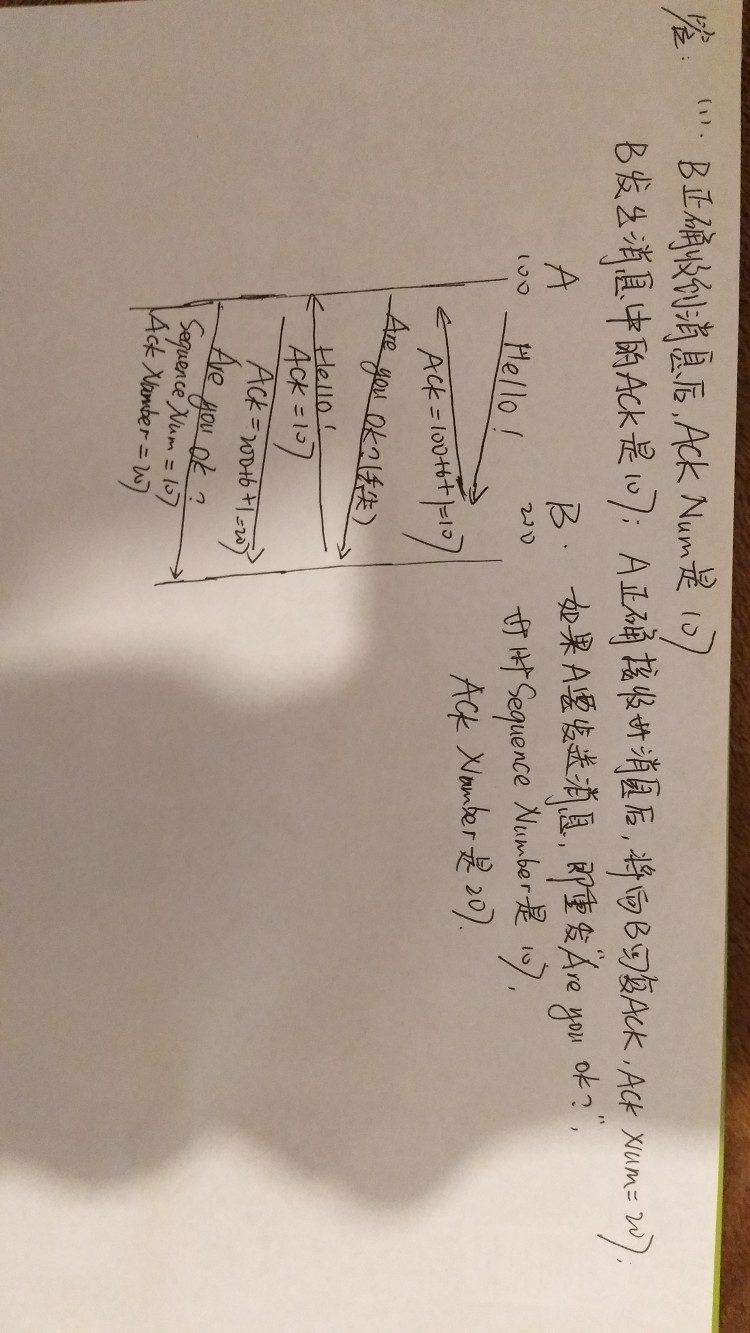 答: (1). B正确收到消息后, ACK Num是107
B发出消息中的ACK是107; A正确接收此消息后, 将向B回复ACK, ACK Num=207;
A B. 如果A要发送消息, 即重发"Are you ok?",
100 200 此时Sequence Number是107,
ACK Number是207.
Hello!
ACK=100+6+1=107
Are you ok?(丢失)
Hello!
ACK=107
ACK=200+6+1=207
Are you ok?
Sequence Num=107
ACK Number=207